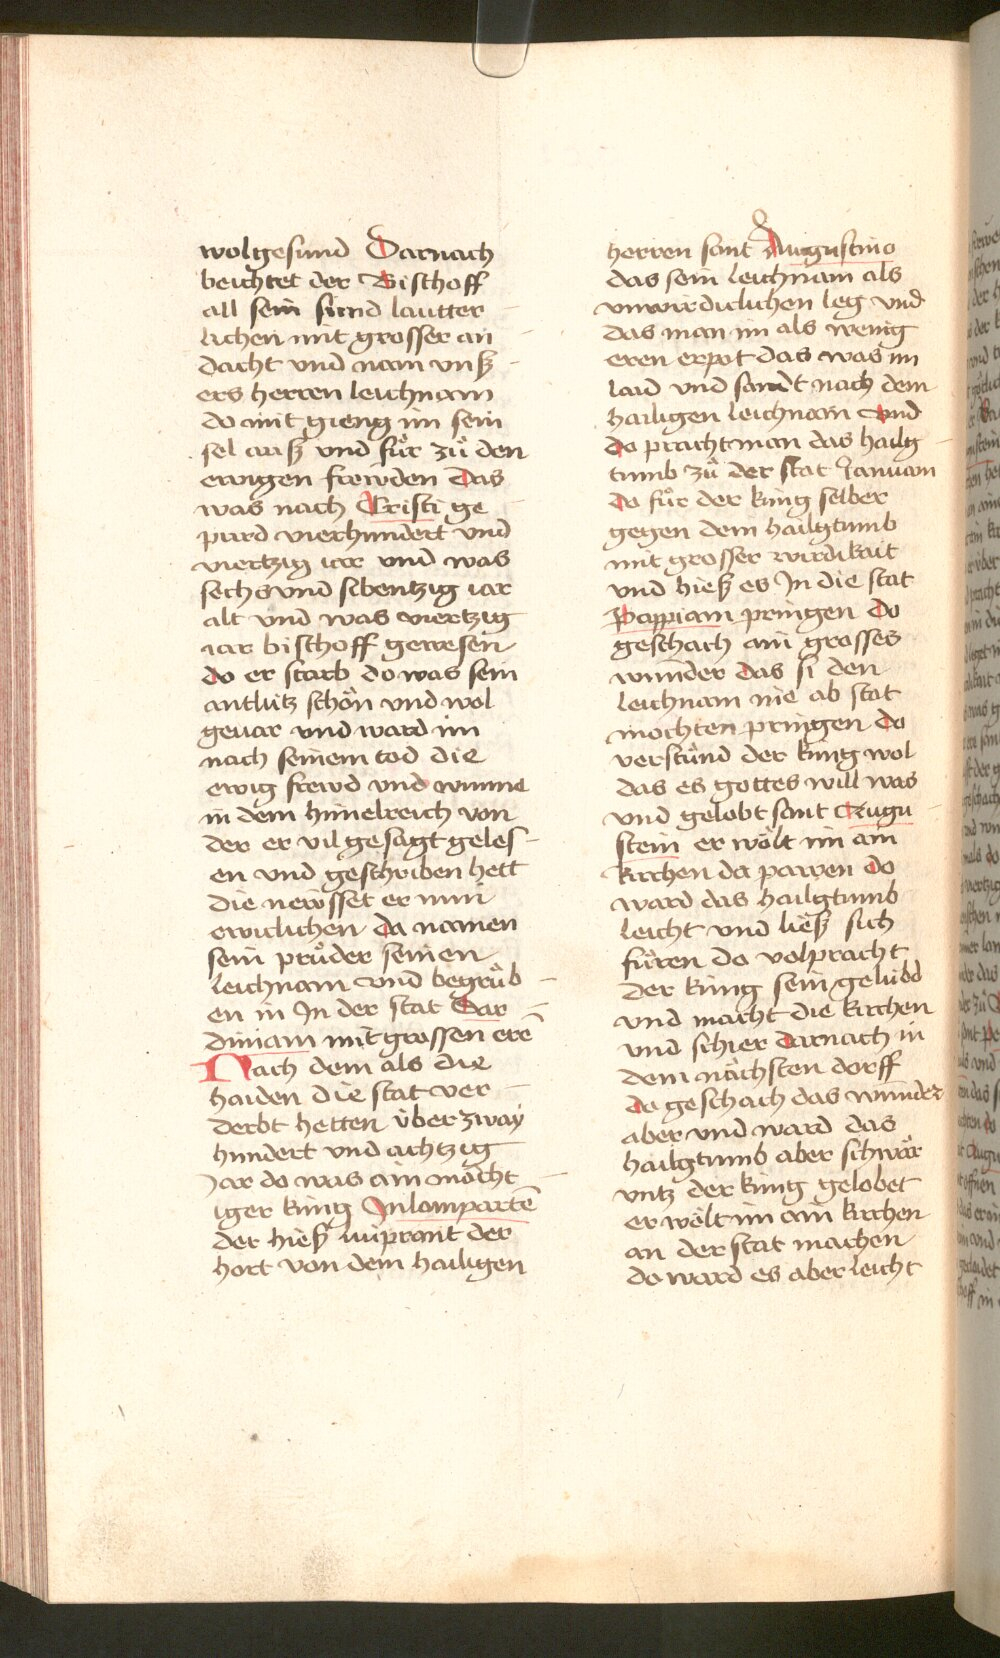 wolgesund Darnach
beichtet der Bischoff
all sein sünd lautter
lichen mit grosser an
dacht vnd nam vnß
ers herren leichnam
do mit gieng im sein
sel auß vnd fuͦr zuͦ den
ewigen frewden Das
was nach Cristi ge
purd vierhundert vnd
viertzig iar vnd was
sechs vnd sibentzig iar
alt vnd was viertzig
iar bischoff gewesen
do er starb do was sein
antlütz schön vnd wol
geuar vnd ward im
nach seinem tod die
ewig frewd vnd wunne
in dem himelreich von
der er vil gesagt geles
en vnd geschriben hett
die newsset er nun
ewiclichen da namen
sein pruͦder seinen
leichnam vnd begruͦb
en in In der stat Sar
diniam mit grossen erē
Nach dem als die
haiden die stat ver
derbt hetten über zway
hundert vnd achtzig
Iar do was ain mächt
iger küng In lompartē
der hieß luiprant der
hort von dem hailigen
herren sant Augustino
das sein leichnam als
vnwirdiclichen leg vnd
das man im als wenig
eren erpot das was im
laid vnd sandt nach dem
hailigen leichnam Vnd
do pracht man das hailg
tumb zuͦ der stat Ianuam
do fuͦr der küng selber
gegen dem hailgtumb
mit grosser wirdikait
vnd hieß es In die stat
Pappiam pringen Do
geschach ain grosses
wunder das si den
leichnam nie ab stat
mochten pringen do
verstuͦnd der küng wol
das es gottes will was
vnd gelobt sant Augu
stein er wölt im ain
kirchen da pawen do
ward das hailgtumb
leicht vnd ließ sich
füren do volpracht
der küng sein gelübd
vnd macht die kirchen
vnd schier darnach in
dem nächsten dorff
do geschach das wunder
aber vnd ward das
hailgtumb aber schwär
vntz der küng gelobet
er wölt im ain kirchen
an der stat machen
do ward es aber leicht